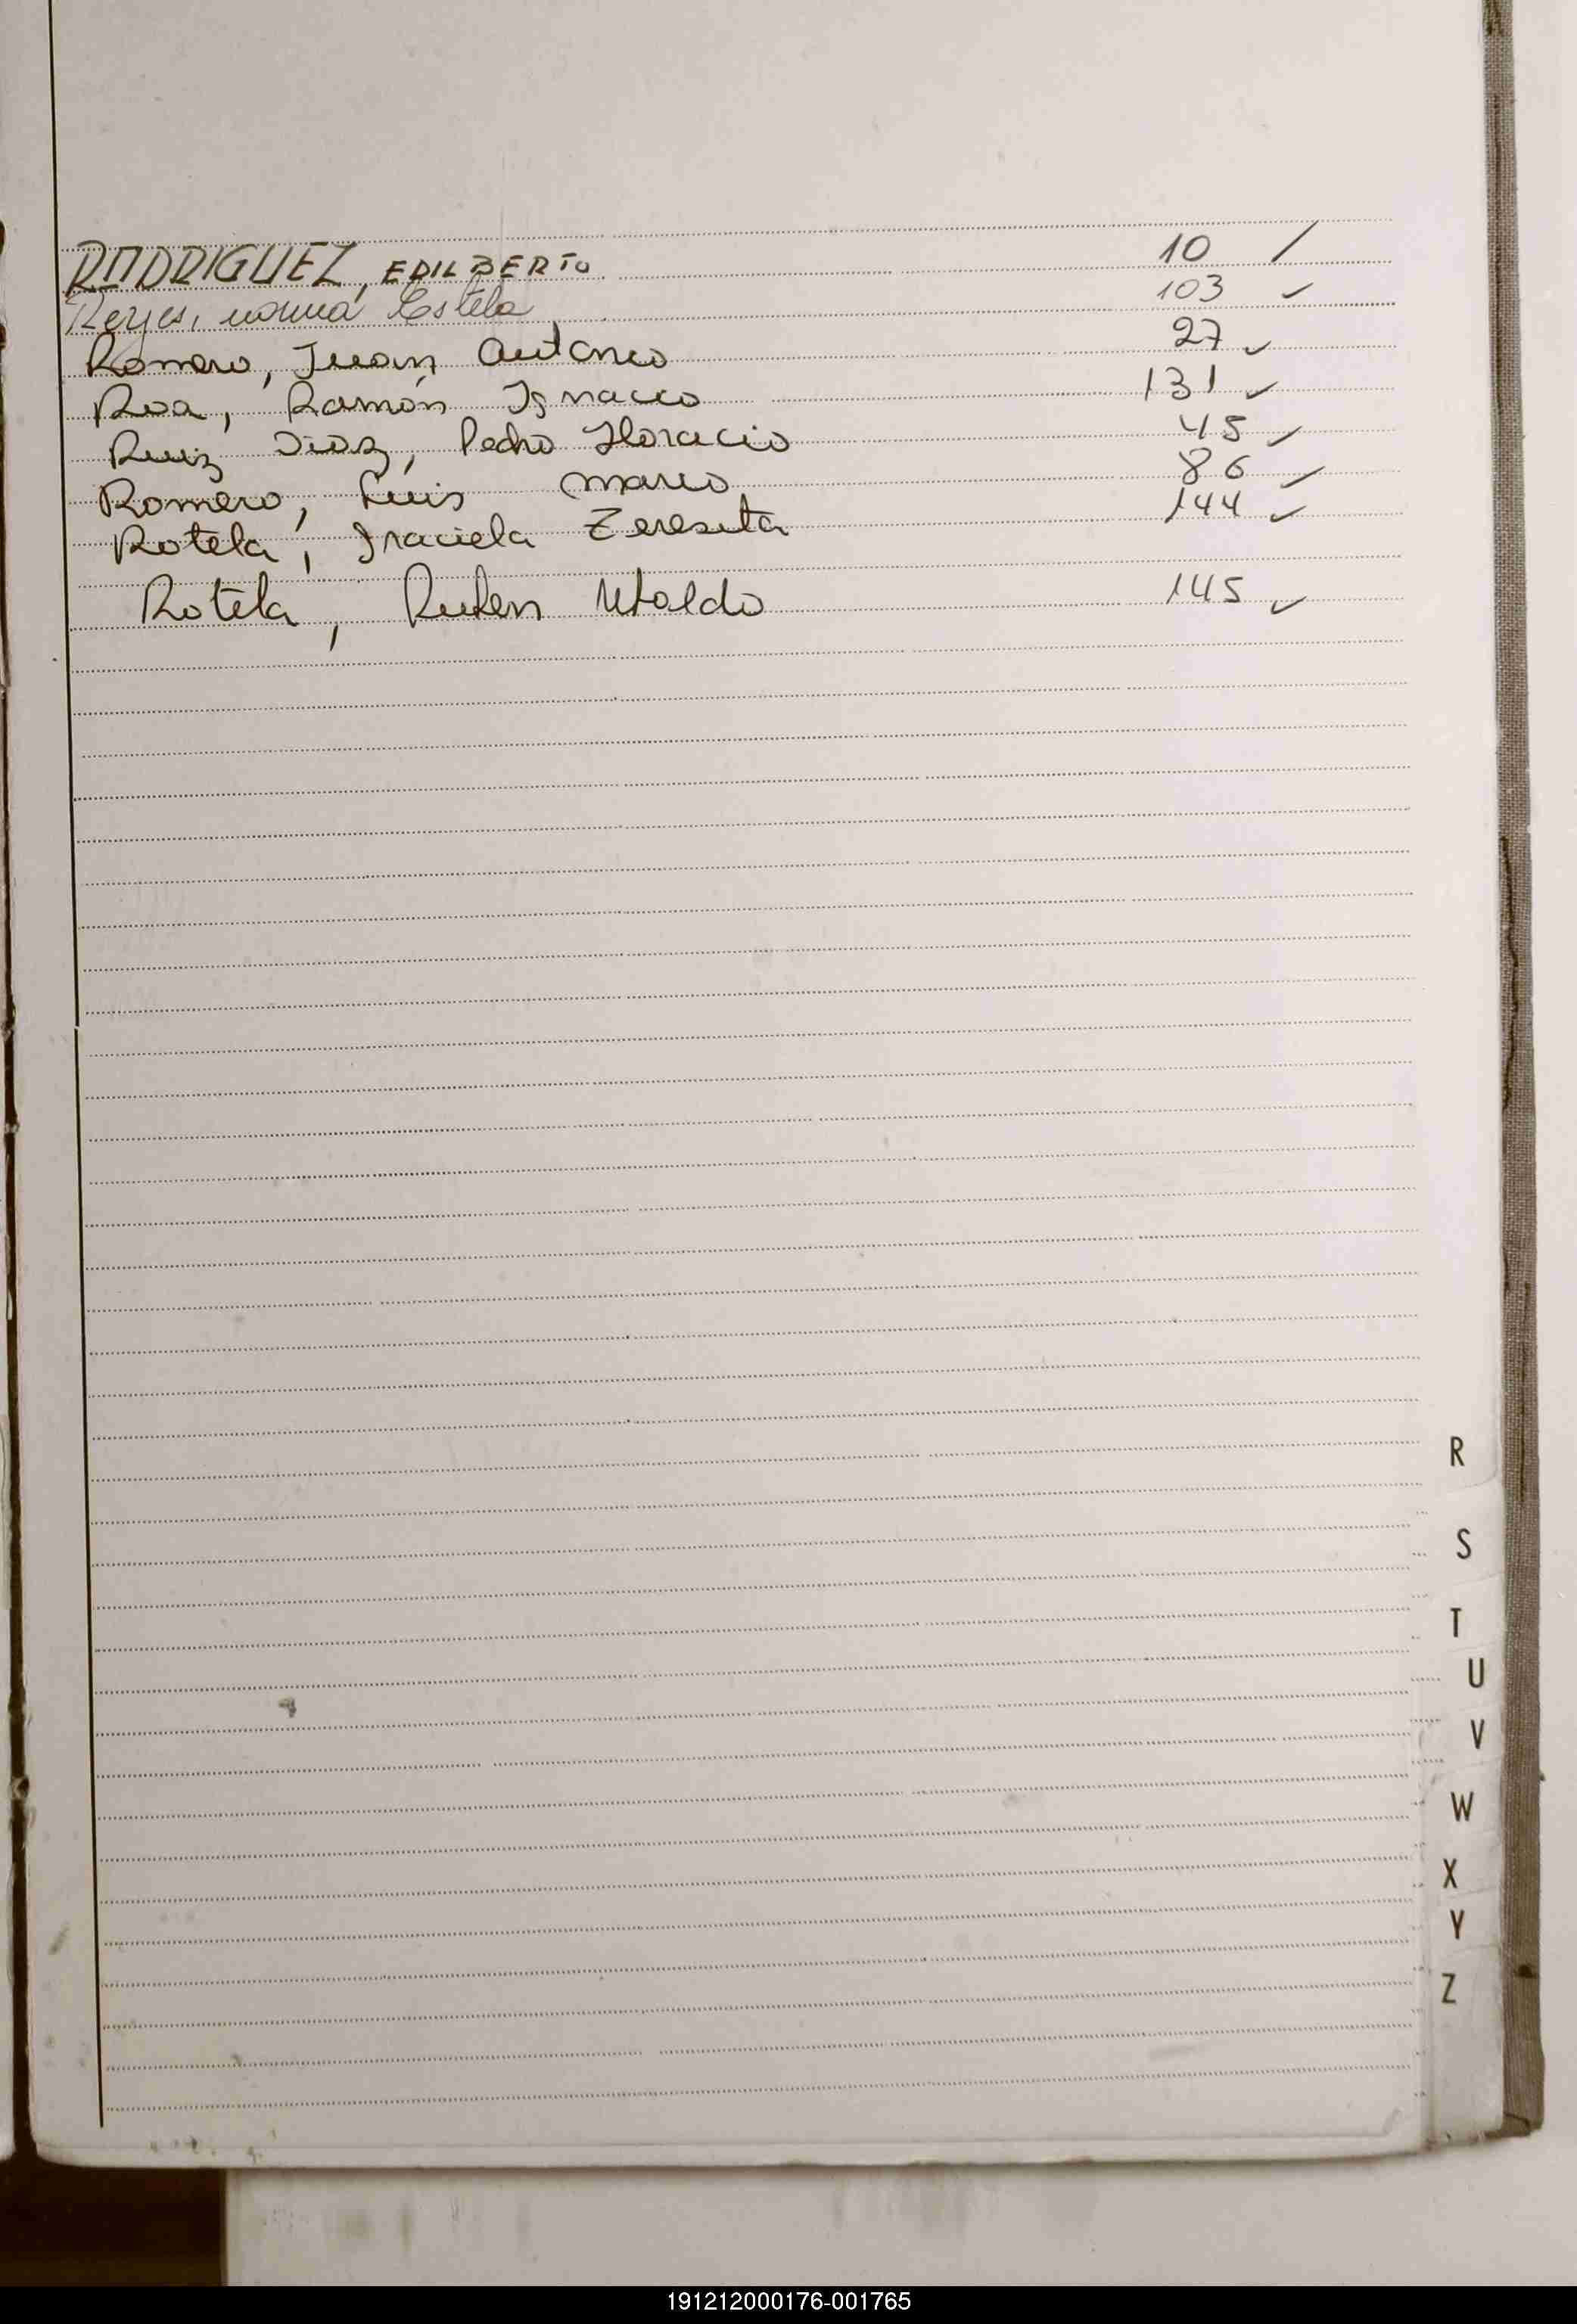 RODRIGUEZ, EDILBERTO 10 /
Reyes, norma Estela 103 ✓
Romero, Juan Antonio 27 ✓
Roa, Ramón Ignacio 131 ✓
Ruiz Diaz, Pedro Horacio 45 ✓
Romero, Luis Mario 86 ✓
Rotela, Graciela Teresita 144 ✓
Rotela, Ruben Ubaldo 145 ✓
R
S
T
U
V
W
X
Y
Z
191212000176-001765